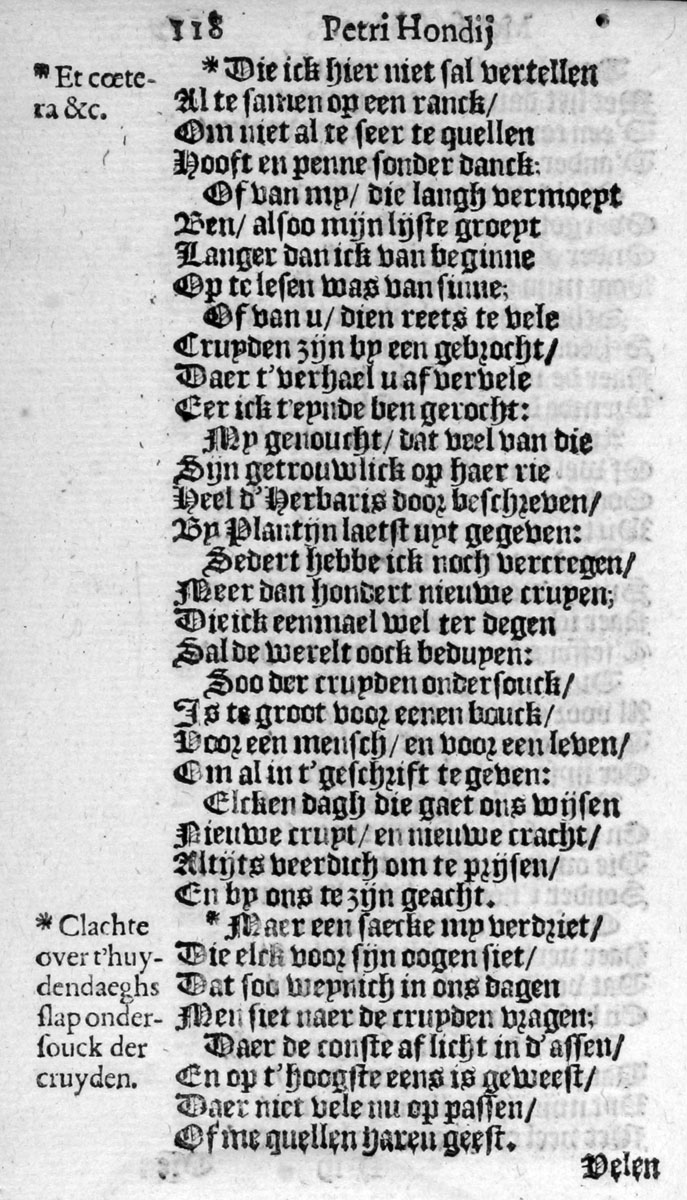 118 Petri Hondij
* Et cœte-
ra &c.
* Die ick hier niet sal vertellen
Al te samen op een ranck/
Om niet al te seer te quellen
Hooft en penne sonder danck:
Of van my/ die langh vermoeyt
Ben/ alsoo mijn lijste groeyt
Langer dan ick van beginne
Op te lesen was van sinne;
Of van u/ dien reets te vele
Cruyden zijn by een gebrocht/
Daer t'verhael u af vervele
Eer ick t'eynde ben gerocht:
My genoucht/ dat veel van die
Sijn getrouwlick op haer rie
Heel d'Herbaris door beschreven/
By Plantijn laetst uyt gegeven:
Sedert hebbe ick noch vercregen/
Meer dan hondert nieuwe cruyen;
Die ick eenmael wel ter degen
Sal de werelt oock beduyen:
Soo der cruyden ondersouck/
Is te groot voor eenen bouck/
Voor een mensch/ en voor een leven/
Om al in t'geschrift te geven:
Elcken dagh die gaet ons wijsen
Nieuwe cruyt/ en nieuwe cracht/
Altijts veerdich om te prijsen/
En by ons te zijn geacht.
* Clachte
over t'huy-
dendaeghs
slap onder-
souck der
cruyden.
* Maer een saecke my verdriet/
Die elck voor sijn oogen siet/
Dat soo weynich in ons dagen
Men siet naer de cruyden vragen;
Daer de conste af licht in d'assen/
En op t'hoogste eens is geweest/
Daer niet vele nu op passen/
Of me quellen haren geest.
Velen